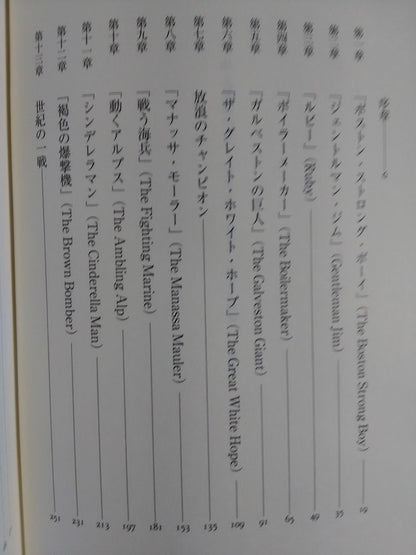 序奏——9
第一章 『ボストン・ストロング・ボーイ』(The Boston Strong Boy)——19
第二章 『ジェントルマン・ジム』(Gentleman Jim)——35
第三章 『ルビー』(Ruby)——49
第四章 『ボイラーメーカー』(The Boilermaker)——65
第五章 『ガルベストンの巨人』(The Galveston Giant)——91
第六章 『ザ・グレイト・ホワイト・ホープ』(The Great White Hope)——109
第七章 放浪のチャンピオン——135
第八章 『マナッサ・モーラー』(The Manassa Mauler)——153
第九章 『戦う海兵』(The Fighting Marine)——181
第十章 『動くアルプス』(The Ambling Alp)——197
第十一章 『シンデレラマン』(The Cinderella Man)——213
第十二章 『褐色の爆撃機』(The Brown Bomber)——231
第十三章 世紀の一戦——251